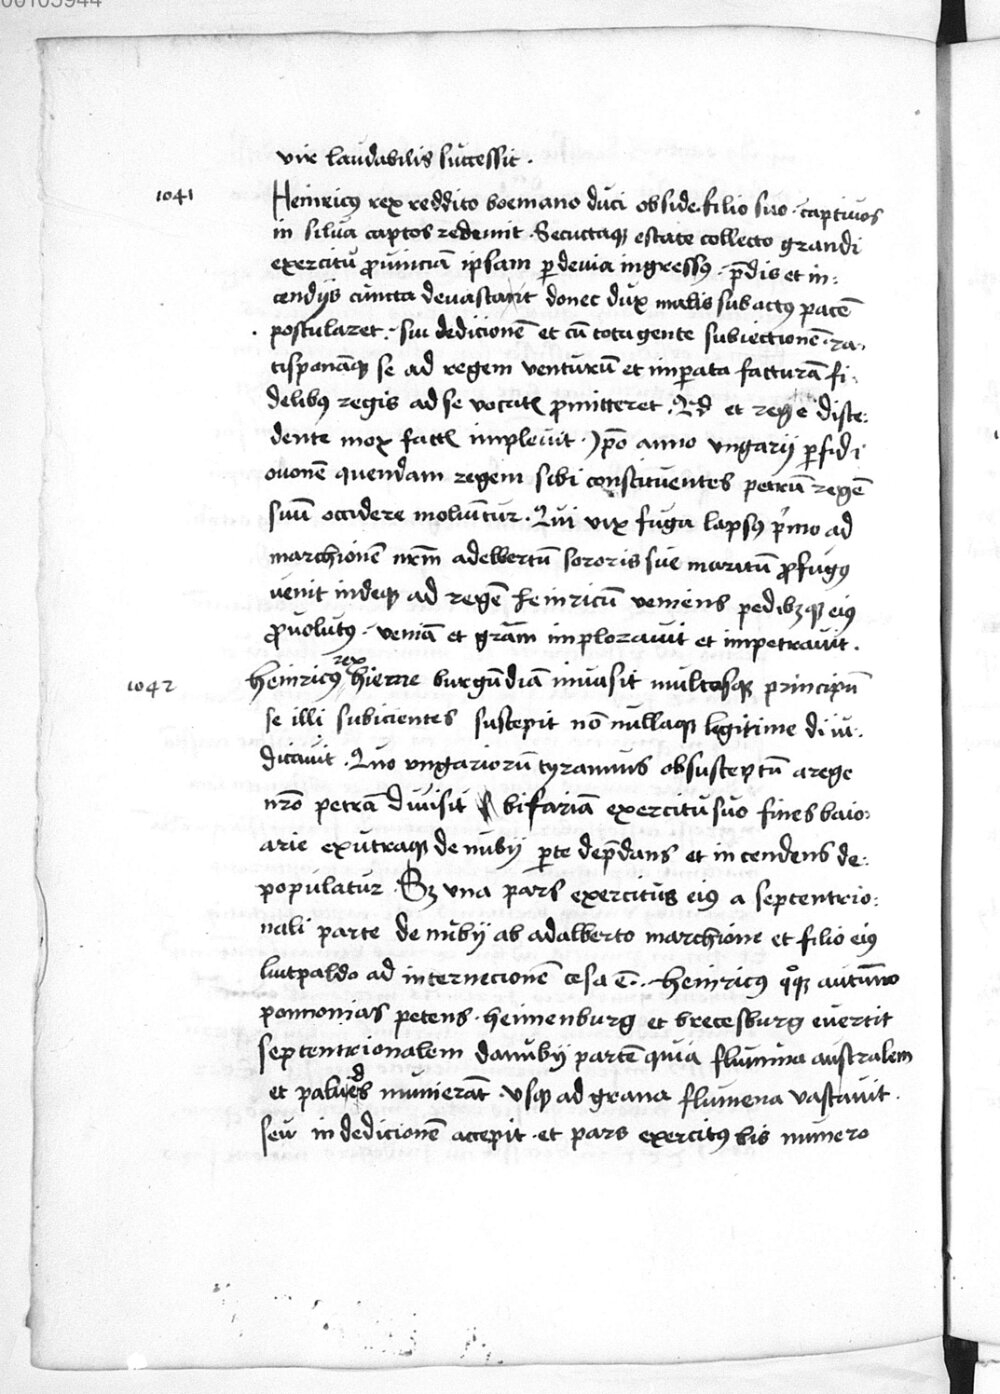 00103944
vir laudabilis successit .
1041 Heinricꝰ rex reddito boemano duci obside filio suo . captiuos
in silua captos redemit . Secutaqꝫ estate collecto grandi
exercitu ꝓuinciā ipsam ꝑ deuia ingressꝰ . p̄dis et in:
cendijs cuncta deuastauit donec dux malis subactꝰ pacē
. postularet . sui dedicionē et cū tota gente subiectionē . ra,
tisponāqꝫ se ad regem venturū et imꝑata facturū fi,
delibꝰ regis ad se vocat promitteret . et rege disce:
dente mox implevit . anno vngarij ꝑfidi
ouonē quendam regem sibi constituentes petrū regē
suū occidere moliūtur . Qui vix fuga lapsꝰ p̄mo ad
marchionē nr̄m adelbertū sororis sue maritū ꝓfugꝰ
venit indeqꝫ ad regē heinricū veniens pedibꝫqꝫ eiꝰ
ꝓuolutꝰ . veniā et gr̄am implorauit et impetrauit .
1042 Heinricꝰ rex hieme burgūdiā inuasit multosqꝫ principū
se illi subicientes suscepit nō nullaqꝫ legitime di iu,
dicauit . Quo vngariorū tyrannus ob susceptū a rege
nr̄o petrū diuisit bifariā exercitu suo fines baio:
arie ex utraqꝫ denubij ꝑte dep̄dans et incendens de:
populatur . Sꝫ vna pars exercitus eiꝰ a septentrio:
nali parte denubij ab adalberto marchione et filio eiꝰ
liutpaldo ad internecionē cesa ē . heinricꝰ qͦqꝫ autūno
pannonias petens . heimenburg et brecesburg euertit
septentrionalem danubij partē quia flumina australem
et paludes munierāt . vsqꝫ ad grana flumena vastauit .
seu in dedicionē accepit . et pars exercitꝰ bis numero